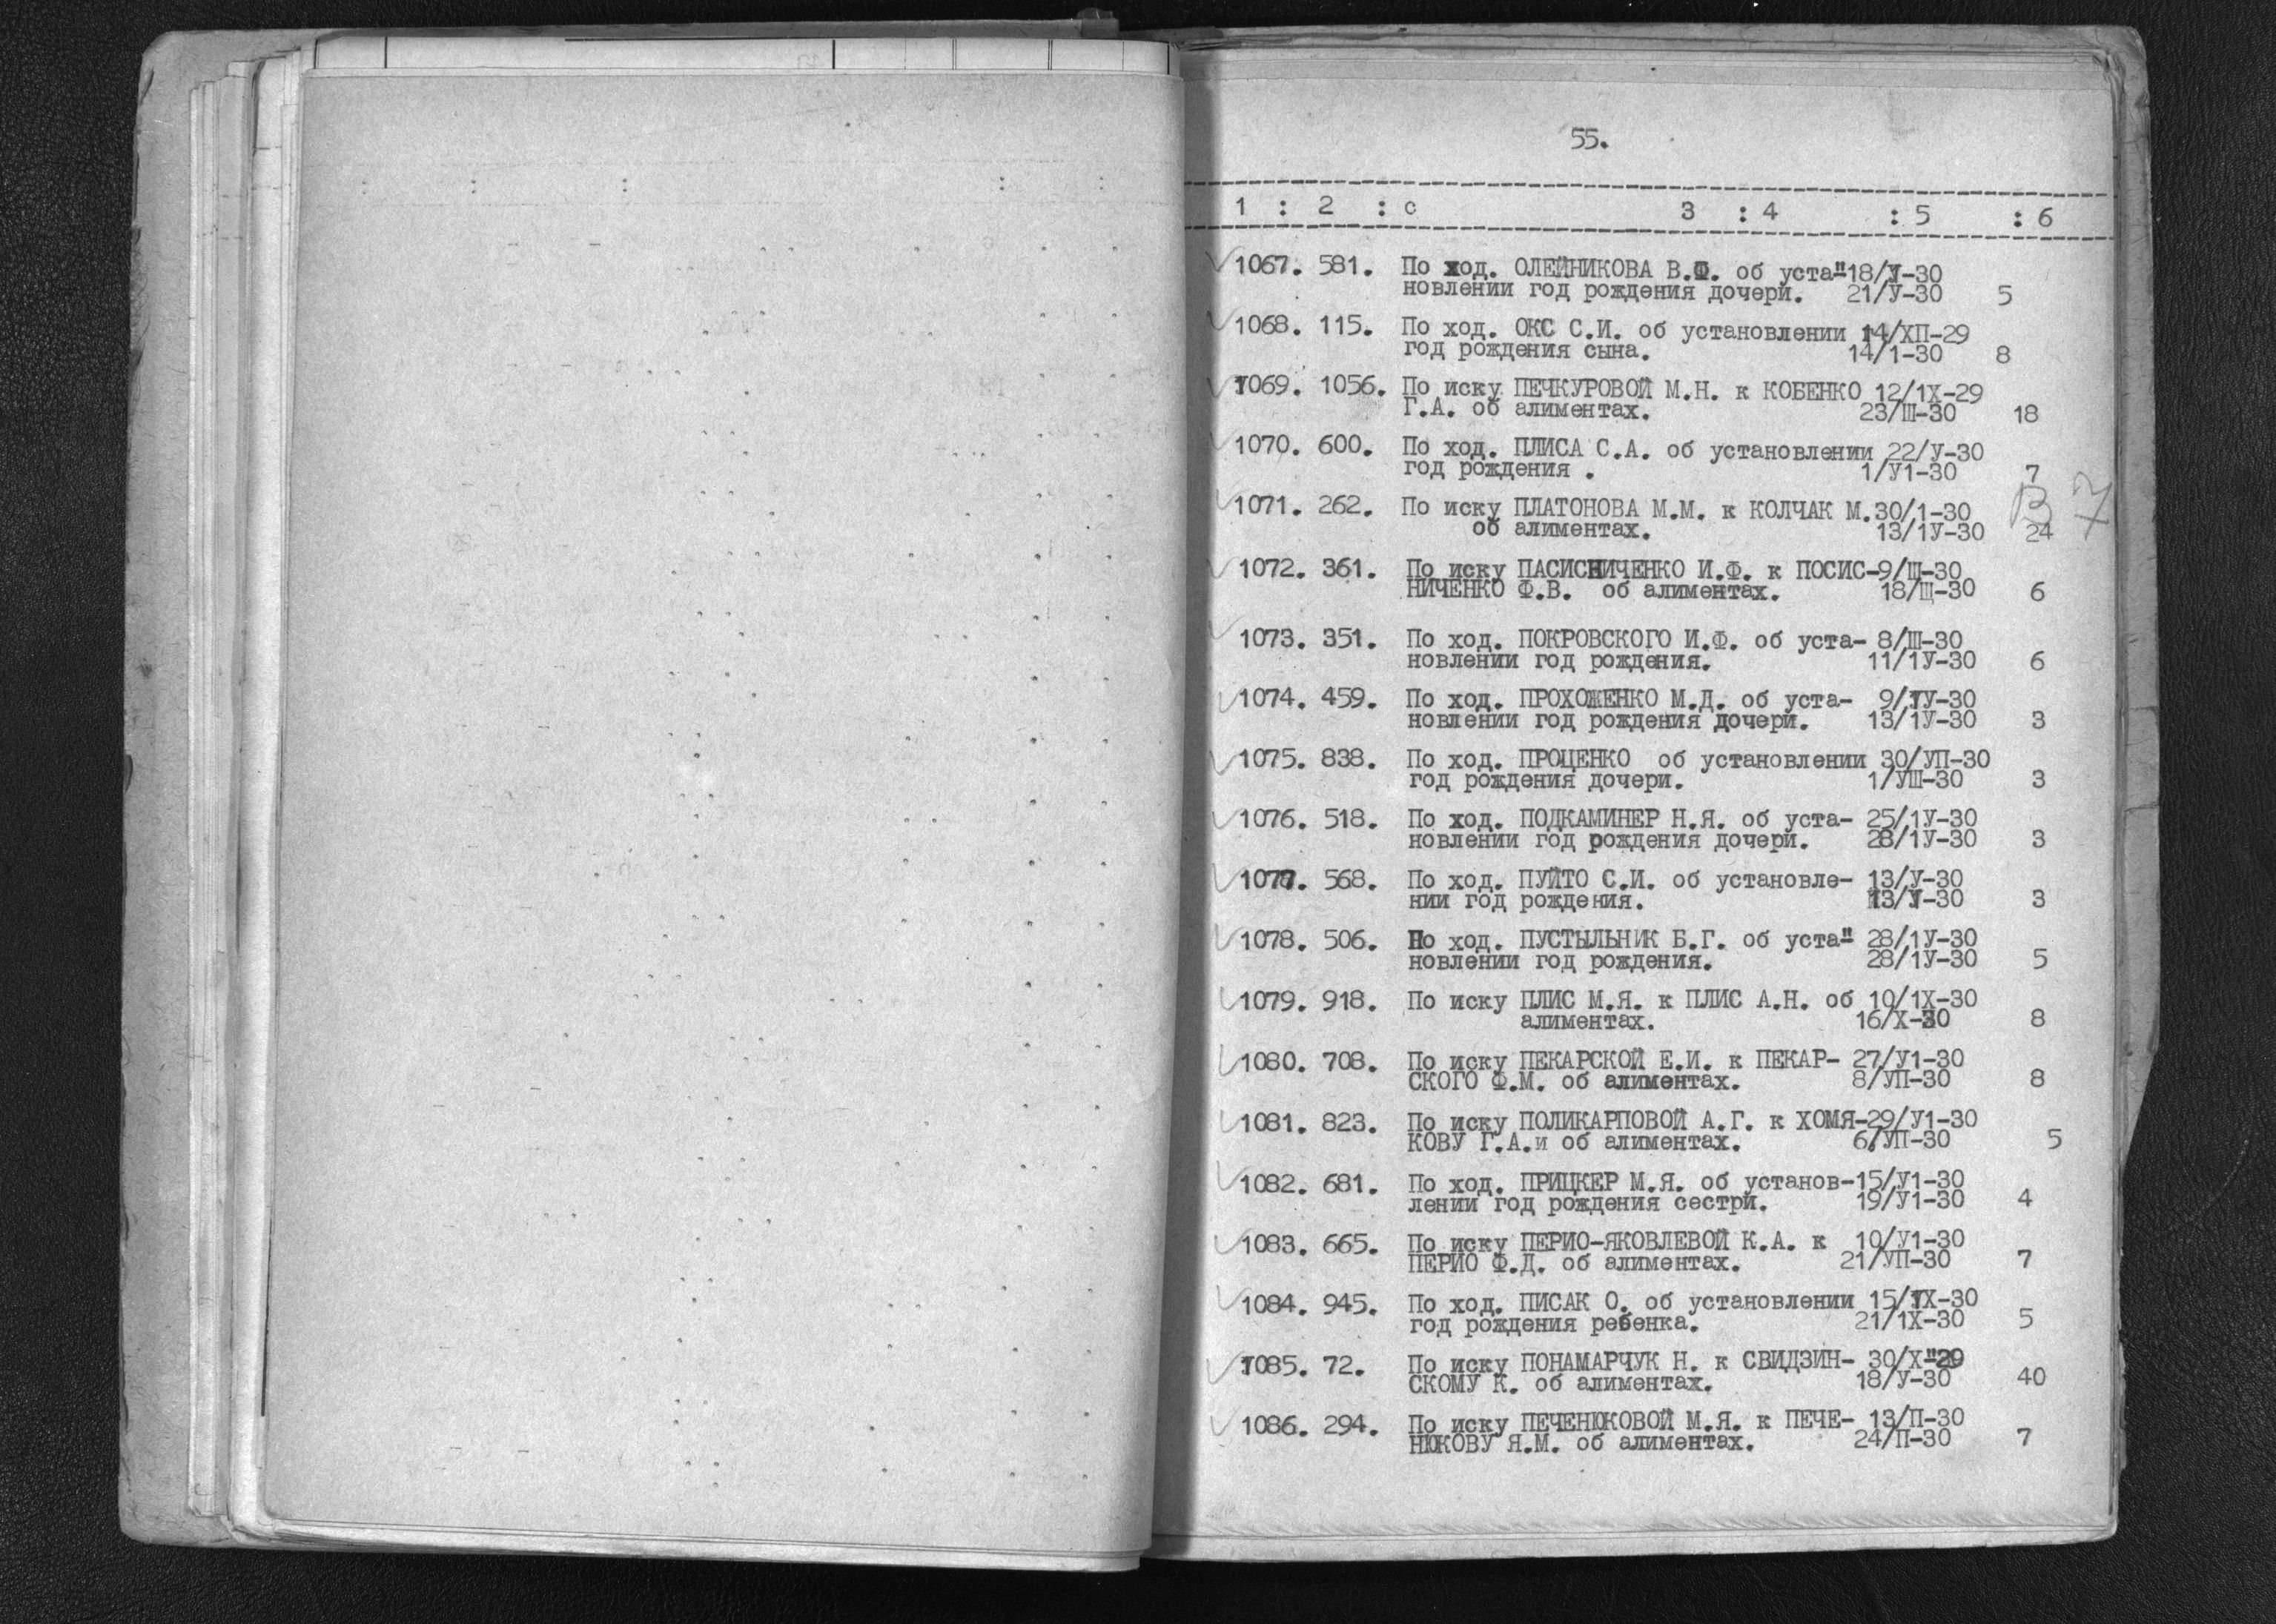 55.
1 : 2 : с 3 : 4 : 5 : 6
1067. 581. По ход. ОЛЕЙНИКОВА В.Ф. об уста-18/У-30
новлении год рождения дочери. 21/У-30 5
1068. 115. По ход. ОКС С.И. об установлении 14/ХП-29
год рождения сына. 14/1-30 8
1069. 1056. По иску ПЕЧКУРОВОЙ М.Н. к КОБЕНКО 12/1Х-29
Г.А. об алиментах. 23/Ш-30 18
1070. 600. По ход. ПЛИСА С.А. об установлении 22/У-30
год рождения . 1/У1-30 7
1071. 262. По иску ПЛАТОНОВА М.М. к КОЛЧАК М.30/1-30
об алиментах. 13/1У-30 24
1072. 361. По иску ПАСИСНИЧЕНКО И.Ф. к ПОСИС-9/Ш-30
НИЧЕНКО Ф.В. об алиментах. 18/Щ-30 6
1073. 351. По ход. ПОКРОВСКОГО И.Ф. об уста- 8/Ш-30
новлении год рождения. 11/1У-30 6
1074. 459. По ход. ПРОХОЖЕНКО М.Д. об уста- 9/1У-30
новлении год рождения дочери. 13/1У-30 3
1075. 838. По ход. ПРОЦЕНКО об установлении 30/УП-30
год рождения дочери. 1/УШ-30 3
1076. 518. По ход. ПОДКАМИНЕР Н.Я. об уста- 25/1У-30
новлении год рождения дочери. 28/1У-30 3
1077. 568. По ход. ПУЙТО С.И. об установле- 13/У-30
нии год рождения. 13/У-30 3
1078. 506. По ход. ПУСТЫЛЬНИК Б.Г. об уста- 28/1У-30
новлении год рождения. 28/1У-30 5
1079. 918. По иску ПЛИС М.Я. к ПЛИС А.Н. об 10/1Х-30
алиментах. 16/Х-30 8
1080. 708. По иску ПЕКАРСКОЙ Е.И. к ПЕКАР- 27/У1-30
СКОГО Ф.М. об алиментах. 8/УП-30 8
1081. 823. По иску ПОЛИКАРПОВОЙ А.Г. к ХОМЯ-29/У1-30
КОВУ Г.А.и об алиментах. 6/УП-30 5
1082. 681. По ход. ПРИЦКЕР М.Я. об установ-15/У1-30
лении год рождения сестри. 19/У1-30 4
1083. 665. По иску ПЕРИО-ЯКОВЛЕВОЙ К.А. к 10/У1-30
ПЕРИО Ф.Д. об алиментах. 21/УП-30 7
1084. 945. По ход. ПИСАК О. об установлении 15/1Х-30
год рождения ребенка. 21/1Х-30 5
1085. 72. По иску ПОНАМАРЧУК Н. к СВИДЗИН- 30/Х-29
СКОМУ К. об алиментах. 18/У-30 40
1086. 294. По иску ПЕЧЕНЮКОВОЙ М.Я. к ПЕЧЕ- 13/П-30
НЮКОВУ Я.М. об алиментах. 24/П-30 7